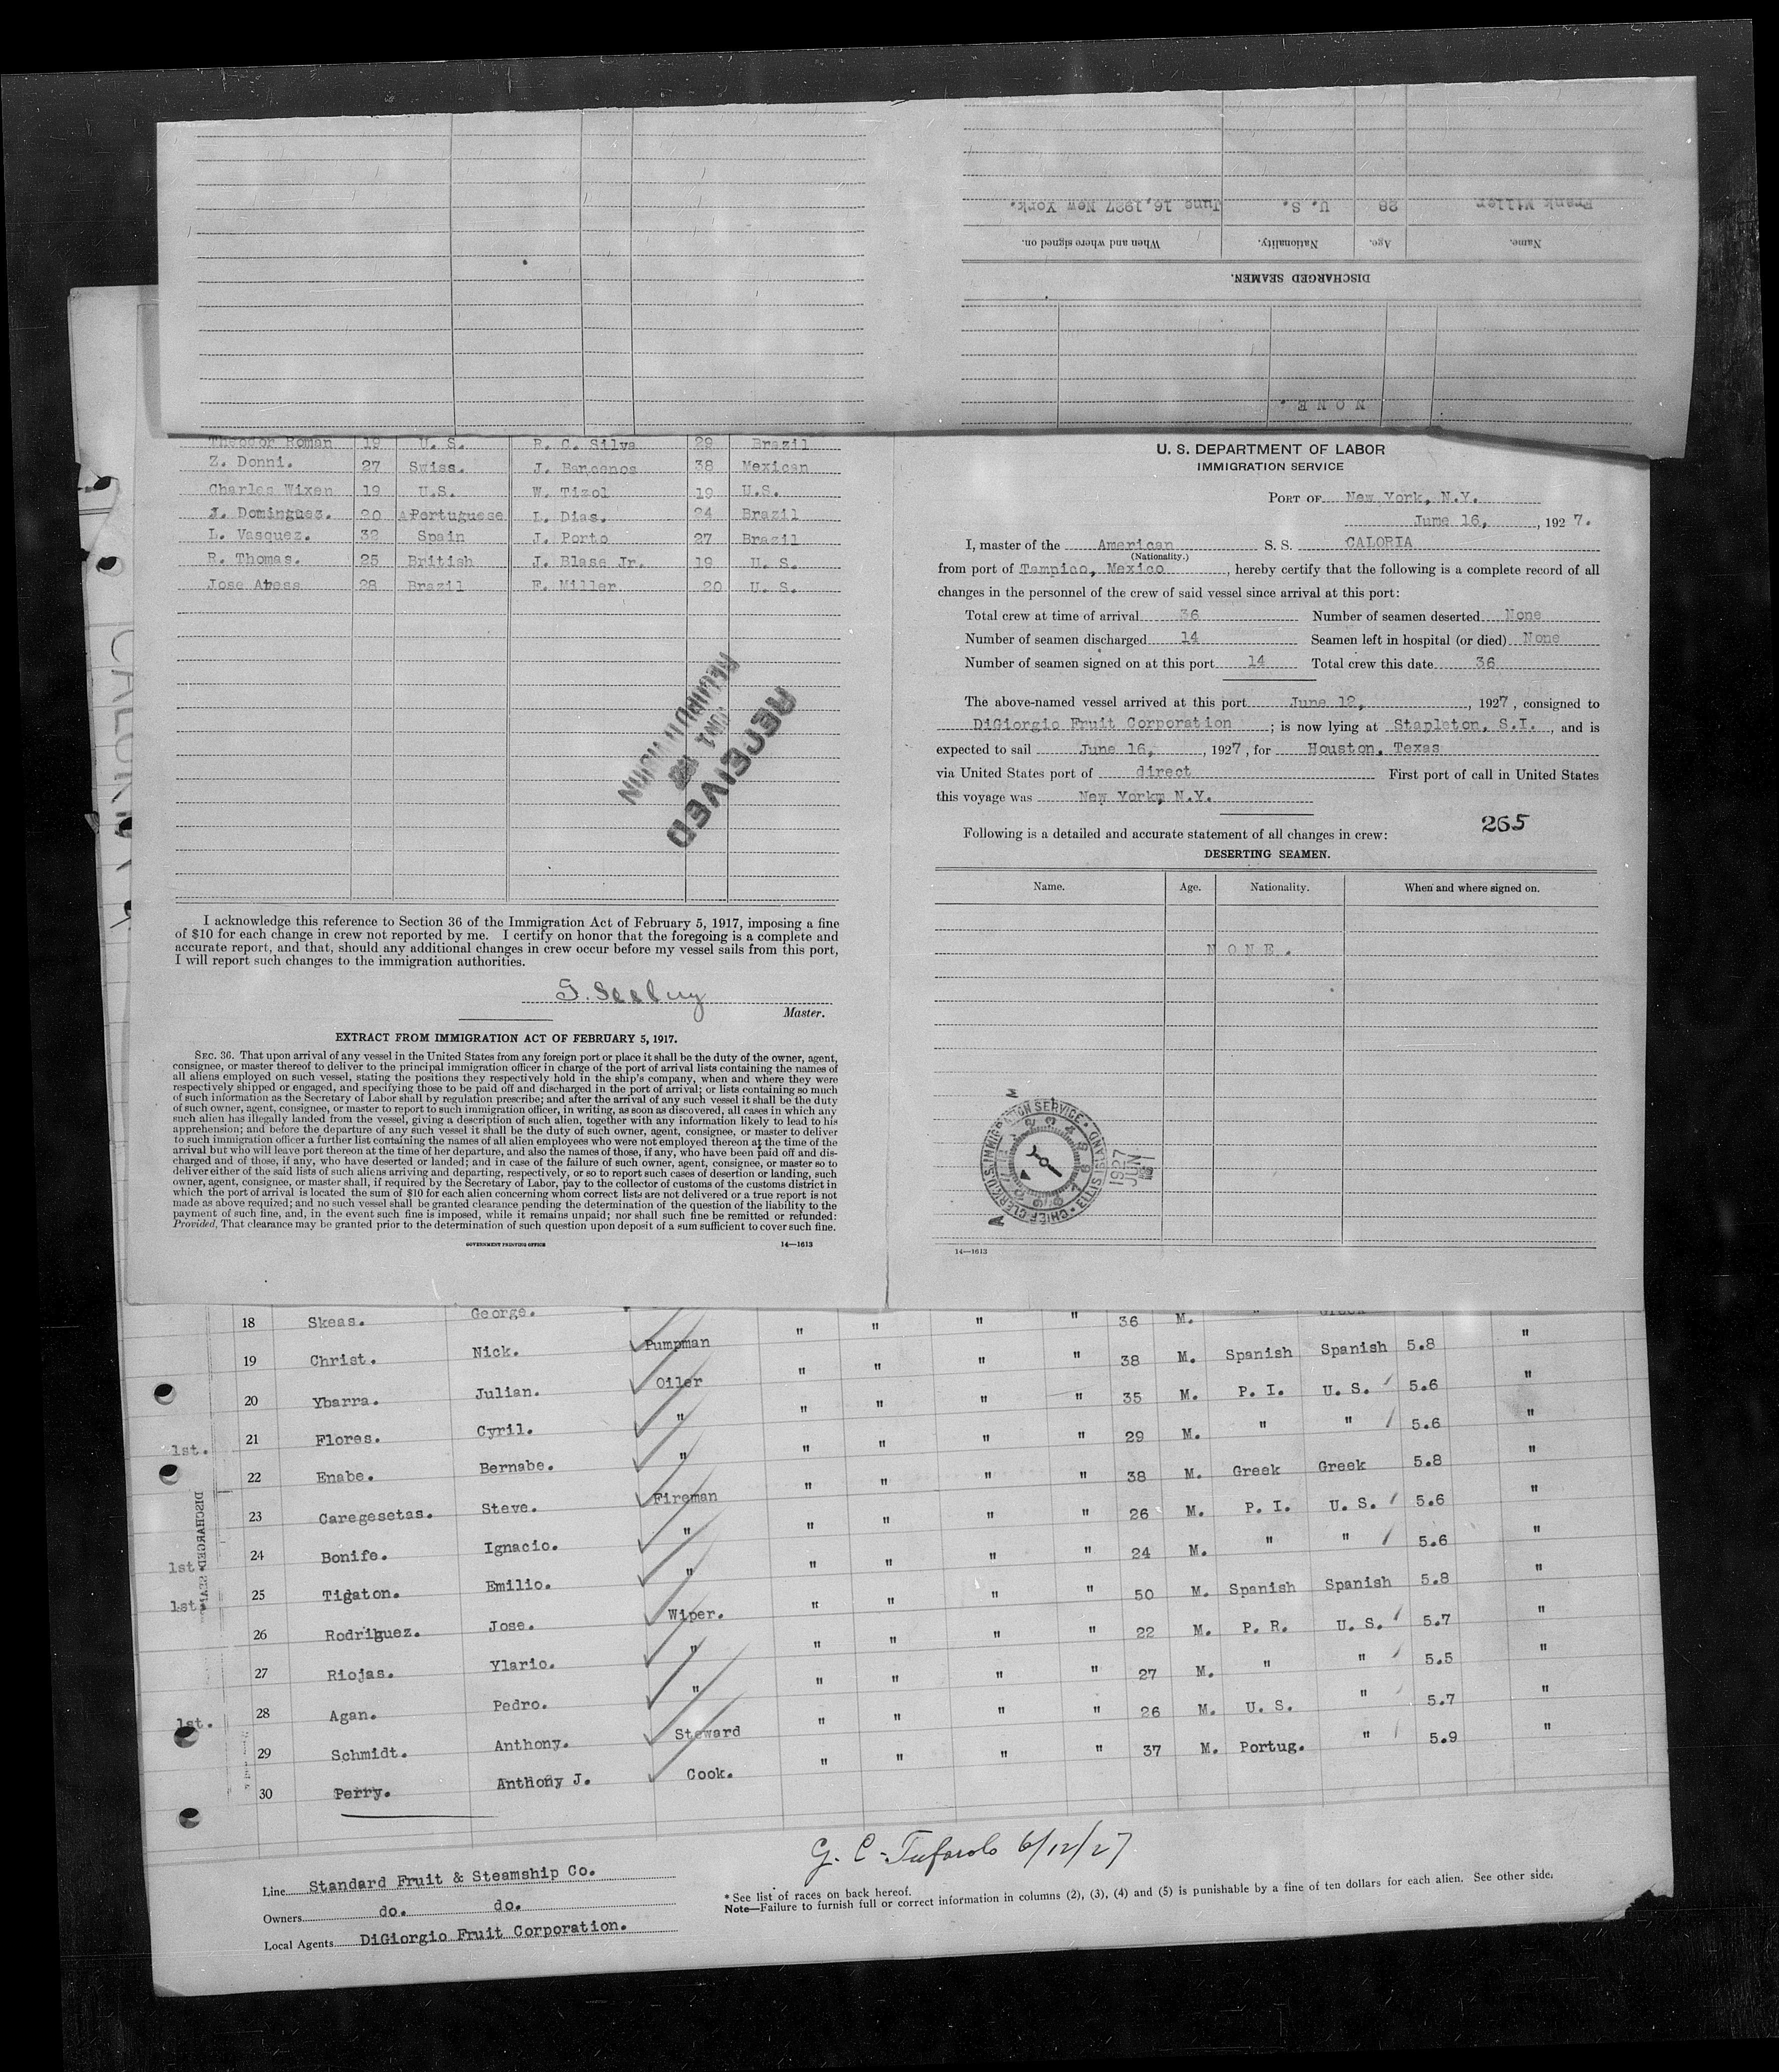 Frank Miller 28 U. S. June 16,1927 New York.
Name. Age. Nationality. When and where signed on.
DISCHARGED SEAMEN.
NONE.
Theodor Roman 19 U. S. R. C. Silva 29 Brazil
Z. Donni. 27 Swiss. J. Barcenos 38 Mexican
Charles Wixen 19 U.S. W. Tizol 19 U.S.
J. Dominguez. 20 Portuguese L. Dias. 24 Brazil
L. Vasquez. 32 Spain J. Porto 27 Brazil
R. Thomas. 25 British J. Blase Jr. 19 U. S.
Jose Abess 28 Brazil F. Miller 20 U. S.
RECEIVED
I acknowledge this reference to Section 36 of the Immigration Act of February 5, 1917, imposing a fine
of $10 for each change in crew not reported by me. I certify on honor that the foregoing is a complete and
accurate report, and that, should any additional changes in crew occur before my vessel sails from this port,
I will report such changes to the immigration authorities.
Master.
EXTRACT FROM IMMIGRATION ACT OF FEBRUARY 5, 1917.
SEC. 36. That upon arrival of any vessel in the United States from any foreign port or place it shall be the duty of the owner, agent,
consignee, or master thereof to deliver to the principal immigration officer in charge of the port of arrival lists containing the names of
all aliens employed on such vessel, stating the positions they respectively hold in the ship's company, when and where they were
respectively shipped or engaged, and specifying those to be paid off and discharged in the port of arrival; or lists containing so much
of such information as the Secretary of Labor shall by regulation prescribe; and after the arrival of any such vessel it shall be the duty
of such owner, agent, consignee, or master to report to such immigration officer, in writing, as soon as discovered, all cases in which any
such alien has illegally landed from the vessel, giving a description of such alien, together with any information likely to lead to his
apprehension; and before the departure of any such vessel it shall be the duty of such owner, agent, consignee, or master to deliver
to such immigration officer a further list containing the names of all alien employees who were not employed thereon at the time of the
arrival but who will leave port thereon at the time of her departure, and also the names of those, if any, who have been paid off and dis-
charged and of those, if any, who have deserted or landed; and in case of the failure of such owner, agent, consignee, or master so to
deliver either of the said lists of such aliens arriving and departing, respectively, or so to report such cases of desertion or landing, such
owner, agent, consignee, or master shall, if required by the Secretary of Labor, pay to the collector of customs of the customs district in
which the port of arrival is located the sum of $10 for each alien concerning whom correct lists are not delivered or a true report is not
made as above required; and no such vessel shall be granted clearance pending the determination of the question of the liability to the
payment of such fine, and, in the event such fine is imposed, while it remains unpaid; nor shall such fine be remitted or refunded:
Provided, That clearance may be granted prior to the determination of such question upon deposit of a sum sufficient to cover such fine.
GOVERNMENT PRINTING OFFICE 14—1613
U. S. DEPARTMENT OF LABOR
IMMIGRATION SERVICE
PORT OF New York, N.Y.
June 16, , 1927.
I, master of the American S. S. CALORIA
(Nationality.)
from port of Tampico, Mexico , hereby certify that the following is a complete record of all
changes in the personnel of the crew of said vessel since arrival at this port:
Total crew at time of arrival 36 Number of seamen deserted None
Number of seamen discharged 14 Seamen left in hospital (or died) None
Number of seamen signed on at this port 14 Total crew this date 36
The above-named vessel arrived at this port June 12, , 1927, consigned to
DiGiorgio Fruit Corporation ; is now lying at Stapleton, S.I. , and is
expected to sail June 16, , 1927, for Houston, Texas
via United States port of direct First port of call in United States
this voyage was New York, N.Y.
265
Following is a detailed and accurate statement of all changes in crew:
DESERTING SEAMEN.
Name. Age. Nationality. When and where signed on.
NONE.
CHIEF CLERK U.S. IMMIGRATION SERVICE • ELLIS ISLAND •
1927
JUN
14—1613
18 Skeas. George. " " " " 36 M. " Greek
19 Christ. Nick. Pumpman " " " " 38 M. Spanish Spanish 5.8 "
20 Ybarra. Julian. Oiler " " " " 35 M. P. I. U. S. 5.6 "
1st. 21 Flores. Cyril. " " " " " 29 M. " " 5.6 "
22 Enabe. Bernabe. " " " " " 38 M. Greek Greek 5.8 "
23 Caregesetas. Steve. Fireman " " " " 26 M. P. I. U. S. 5.6 "
1st 24 Bonife. Ignacio. " " " " " 24 M. " " 5.6 "
1st 25 Tigaton. Emilio. " " " " " 50 M. Spanish Spanish 5.8 "
26 Rodriguez. Jose. Wiper. " " " " 22 M. P. R. U. S. 5.7 "
27 Riojas. Ylario. " " " " " 27 M. " " 5.5 "
1st. 28 Agan. Pedro. " " " " " 26 M. U. S. " 5.7 "
29 Schmidt. Anthony. Steward " " " " 37 M. Portug. " 5.9 "
30 Perry. Anthony J. Cook.
DISCHARGED
CALORIA
G. C. Tufarolo 6/12/27
Line Standard Fruit & Steamship Co.
Owners do. do.
Local Agents DiGiorgio Fruit Corporation.
* See list of races on back hereof.
Note—Failure to furnish full or correct information in columns (2), (3), (4) and (5) is punishable by a fine of ten dollars for each alien. See other side.